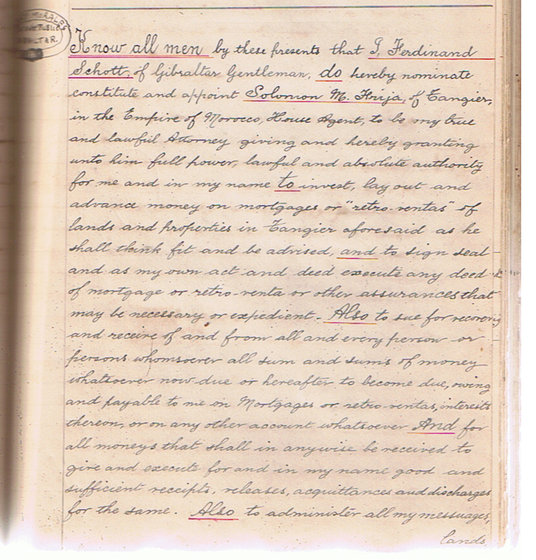 Know all men by these presents that I, Ferdinand
Schott, of Gibraltar Gentleman, do hereby nominate
constitute and appoint Solomon M. of Tangier,
in the Empire of Morocco, House Agent, to be my true
and lawful Attorney giving and hereby granting
unto him full power, lawful and absolute authority
for me and in my name to invest, lay out and
advance money on mortgages or "retro-ventas" of
lands and properties in Tangier aforesaid as he
shall think fit and be advised, and to sign seal
and as my own act and deed execute any deed
of mortgage or retro-venta or other assurances that
may be necessary or expedient. Also to sue for recovery
and receive of and from all and every person or
persons whomsoever all sum and sums of money
whatsoever now due or hereafter to become due, owing
and payable to me on Mortgages or retro-ventas, interests
thereon, or on any other account whatsoever And for
all moneys that shall in anywise be received to
give and execute for and in my name good and
sufficient receipts, releases, acquittances and discharges
for the same. Also to administer all my messuages,
lands